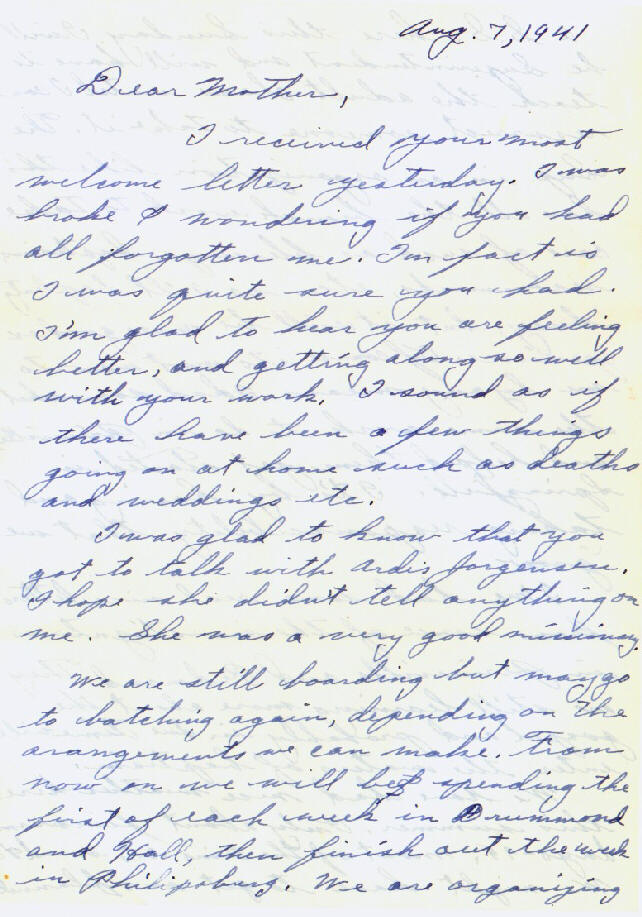 Aug. 7, 1941
Dear Mother,
I received your most
welcome letter yesterday. I was
broke & wondering if you had
all forgotten me. I'm fact is
I was quite sure you had.
I'm glad to hear you are feeling
better, and getting along so well
with your work. I sound as if
there have been a few things
going on at home such as deaths
and weddings etc.
I was glad to know that you
got to talk with Ardis Jorgensen.
I hope she didn't tell anything on
me. She was a very good
We are still boarding but may go
to batching again, depending on the
arangements we can make. From
now on we will be spending the
first of each week in Drummond
and Hall, then finish out the week
in Philipsburg. We are organizing